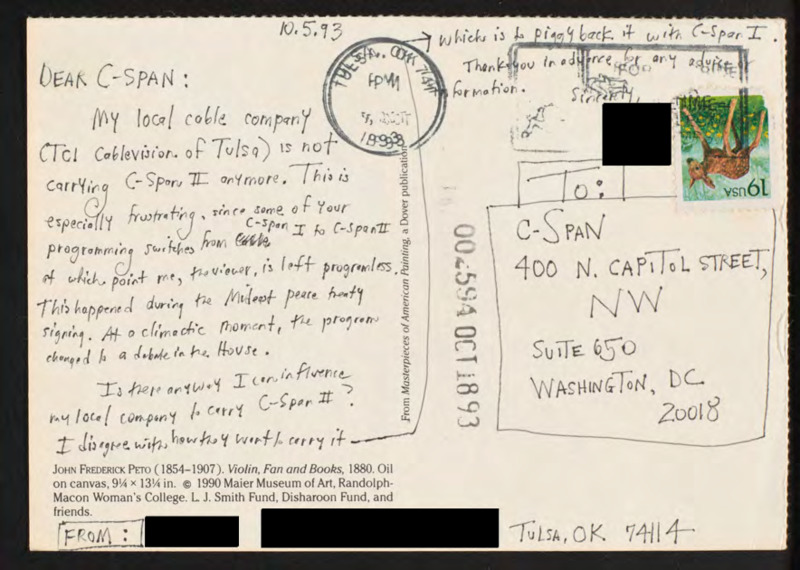 10.5.93
DEAR C-SPAN:
My local cable company
(TCI Cablevision of Tulsa) is not
carrying C-Span II anymore. This is
especially frustrating, since some of your
programming switches from C-Span I to C-Span II
at which point me, the viewer, is left programless.
This happened during the Mideast peace treaty
signing. At a climactic moment, the program
changed to a debate in the House.
Is there anyway I can influence
my local company to carry C-Span II?
I disagree with how they want to carry it
which is to piggyback it with C-Span I.
Thank you in advance for any advice or
formation.
Sincerely,
TULSA, OK 741
PM
1993
19USA
To:
C-SPAN
400 N. CAPITOL STREET,
NW
SUITE 650
WASHINGTON, DC
20018
002594 OCT 18 93
From Masterpieces of American Painting, a Dover publication
JOHN FREDERICK PETO (1854–1907). Violin, Fan and Books, 1880. Oil
on canvas, 9¼ × 13¼ in. © 1990 Maier Museum of Art, Randolph-
Macon Woman's College. L. J. Smith Fund, Disharoon Fund, and
friends.
FROM:
TULSA, OK 74114